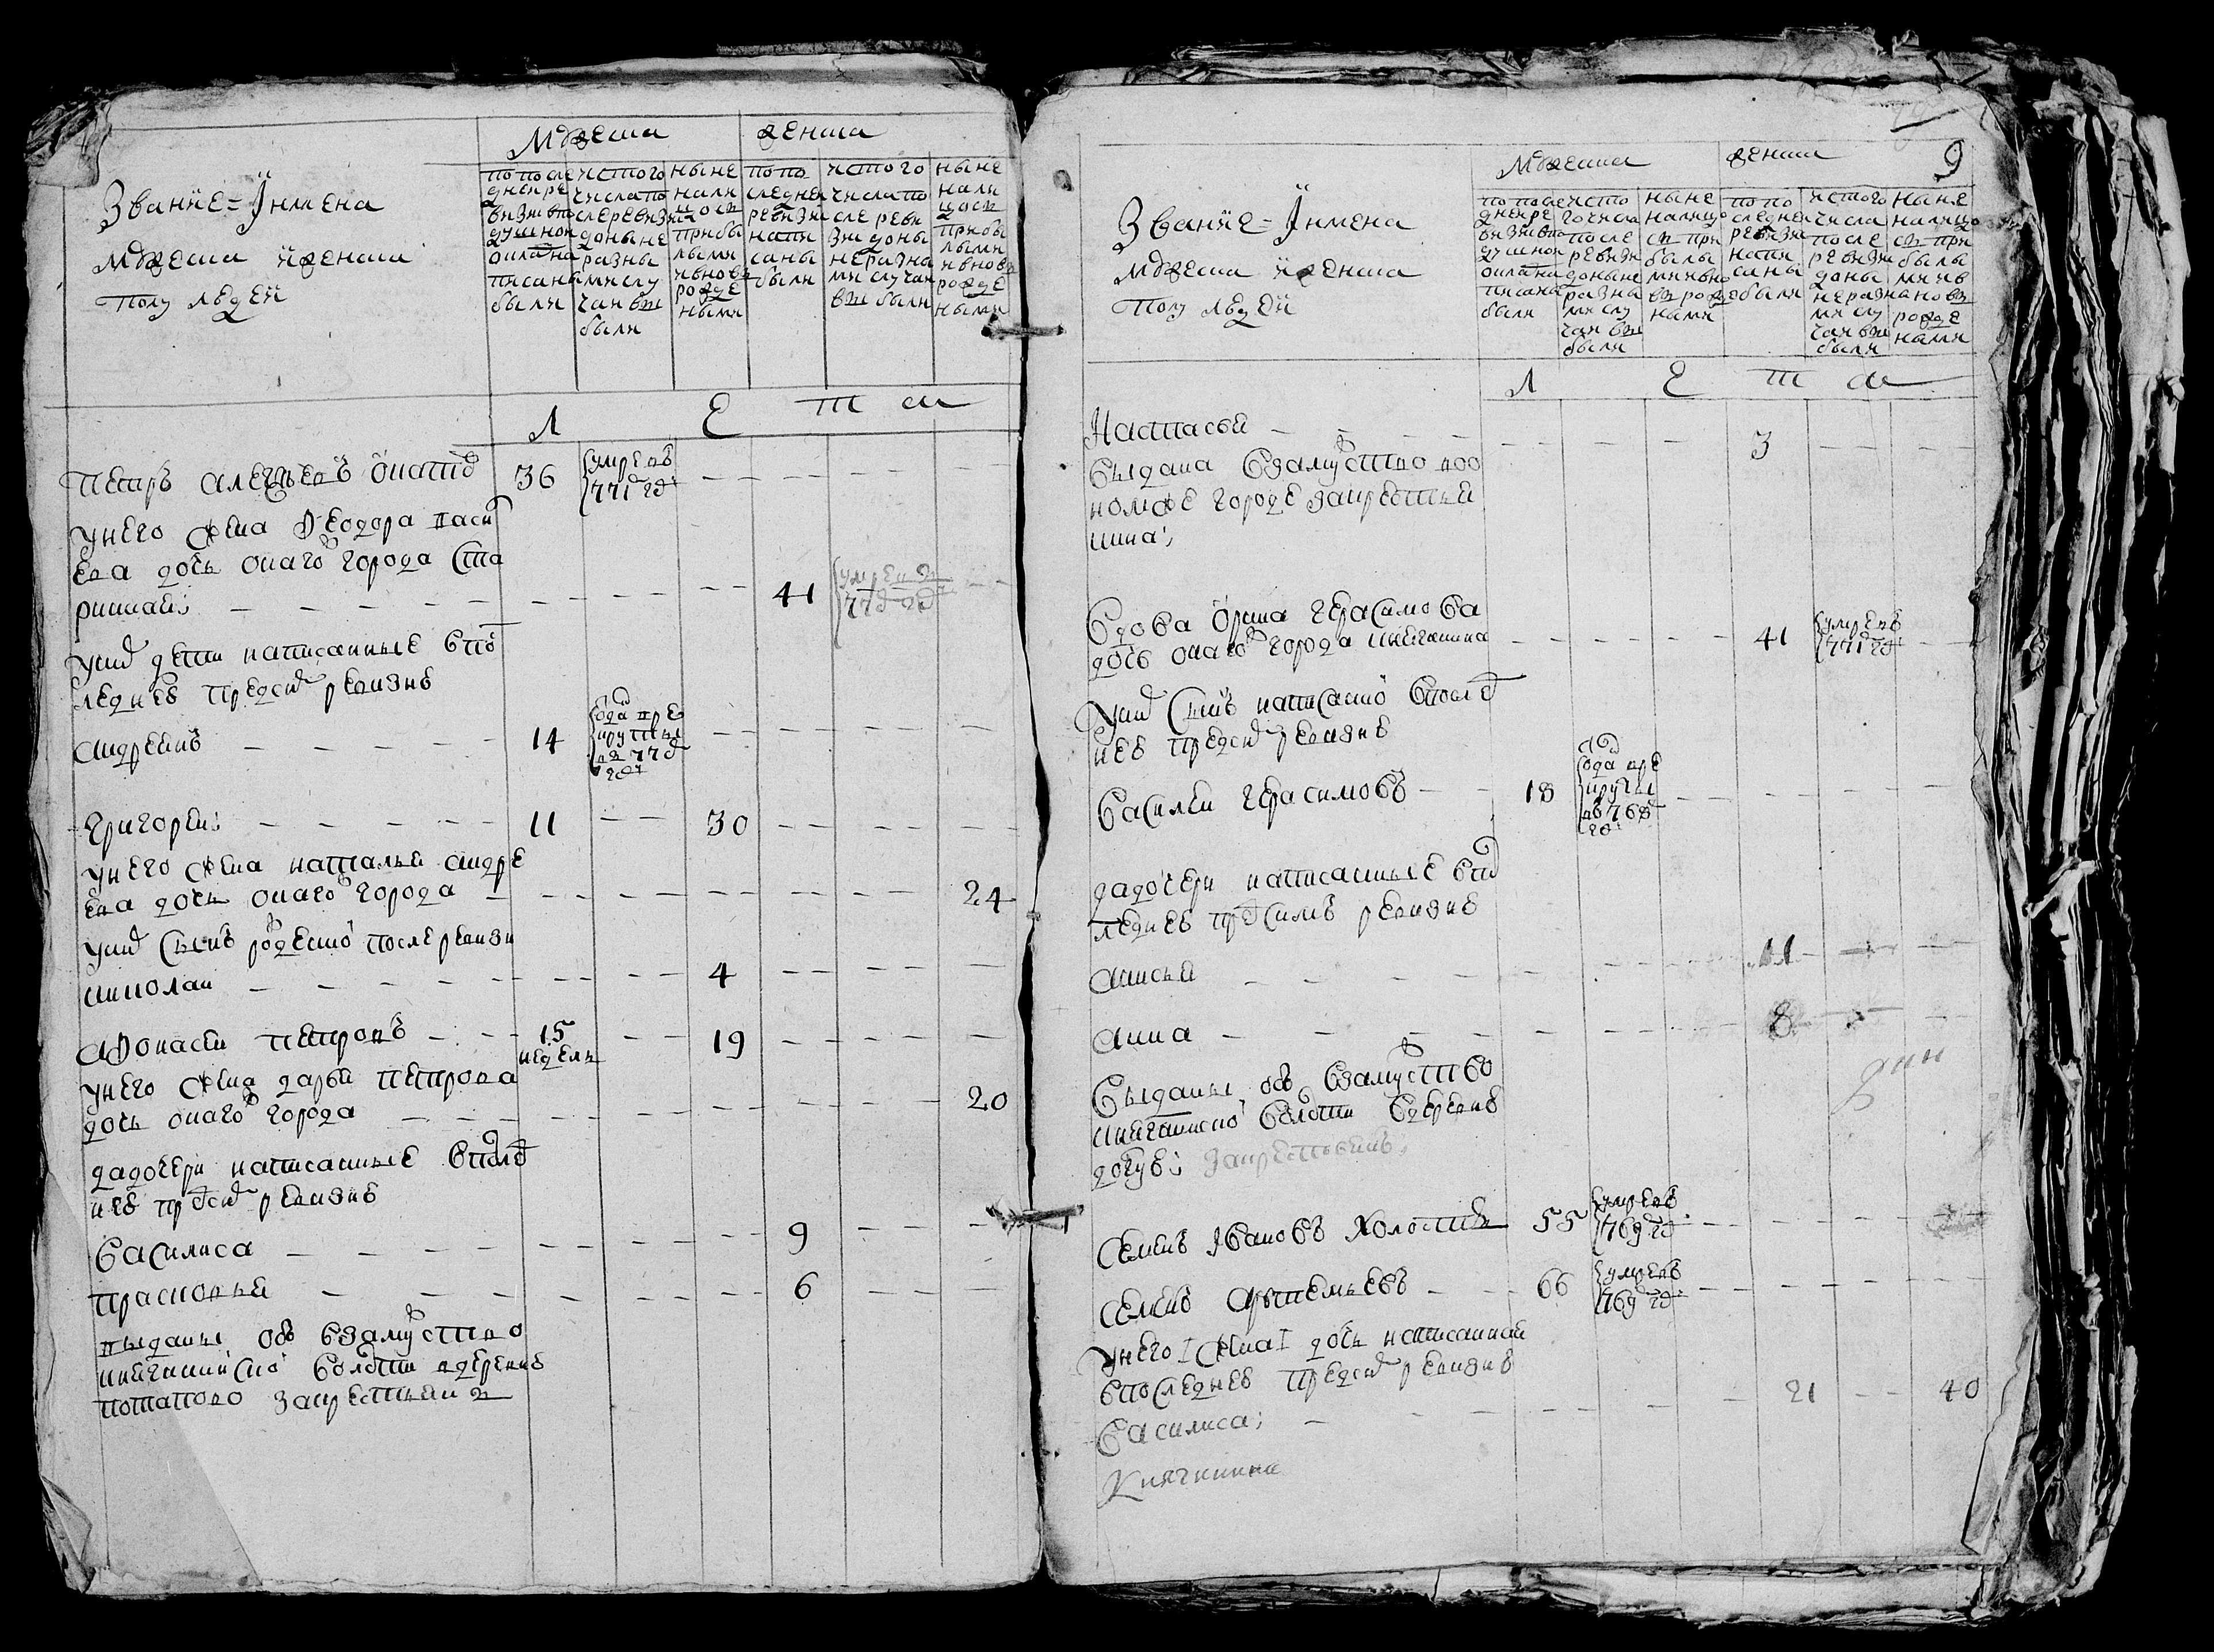 Званiе = Iимена
мужеска iженска
полу людей
Мужеска
женска
попосле
дней ре
визии в
душной
оклад на
писаны
были
ис того
числа по
сле ревизии
до ныне
разны
ми слу
чаи вы
были
ныне
нали
цо с
прибы
лыми
и внов
рожде
ными
по по
следней
ревизии
напи
саны
были
ис того
числа по
сле реви
зии доны
не разны
ми случаи
вы были
ныне
нали
цо с
прибы
лыми
и внов
рожде
ными
Л Е Т А
Петръ алексеевъ 36 умре въ 771 гд
унего жена Федора
ева дочь онаго города Ста
рицкая 41 умре
унихъ дети написанные впо
следней предъ симъ ревизие
андреянъ 14 отда в ре круты в 77 гд
Григореи 11 30
унего жена наталья андре
ева дочь онаго города 24
унихъ сынъ рожденой после ревизи
николаи 4
афонасеи петровъ 15 недель 19
унего жена дарья петрова
дочь онаго города 20
дадочери написанные впосле
дней предъ симъ ревизие
василиса 9
прасковья 6
выданы обе взамужство
волости вдеревню
потапово закрестьянъ
9
Званiе = Iимена
мужеска iженска
полу людей
Мужеска
женска
попосле
дней ре
визии в
душной
оклад на
писаны
были
ис то
го числа
после
ревизии
доныне
разны
ми слу
чаи вы
были
ныне
налицо
с при
былы
ми и вно
в рожде
ными
по по
следней
ревизии
напи
саны
были
ис того
числа
после
ревизии
доны
не разны
ми слу
чаи вы
были
ныне
налицо
с при
былы
ми и в
нов
рожде
ными
Л Е Т А
Настасья 3
выдана взамужство во
номже городе закрестья
нина
вдова арина герасимова
дочь онаго города 41 умре въ 771 гд
унихъ сынъ написаной в после
дней предъ симъ ревизие
василеи герасимовъ 18 отда в ре круты въ 768 гд
дадочери написанные впос
ледней предъ симъ ревизие
анисья 11
анна 8
выданы обе взамужство
волости вдеревню
закрестьянъ
семенъ Ивановъ холостъ 55 умре въ 769 гд
семенъ артемьевъ 66 умре въ 769 гд
унего жена дочь написанная
впоследней предъ симъ ревизие
василиса 21 40